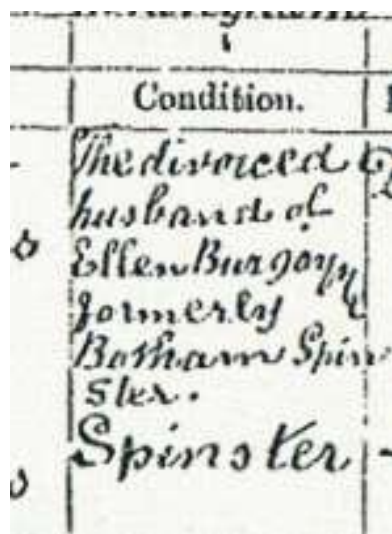 Condition.
The divorced
husband of
Ellen Burgoyne
formerly
Botham Spin
ster.
Spinster